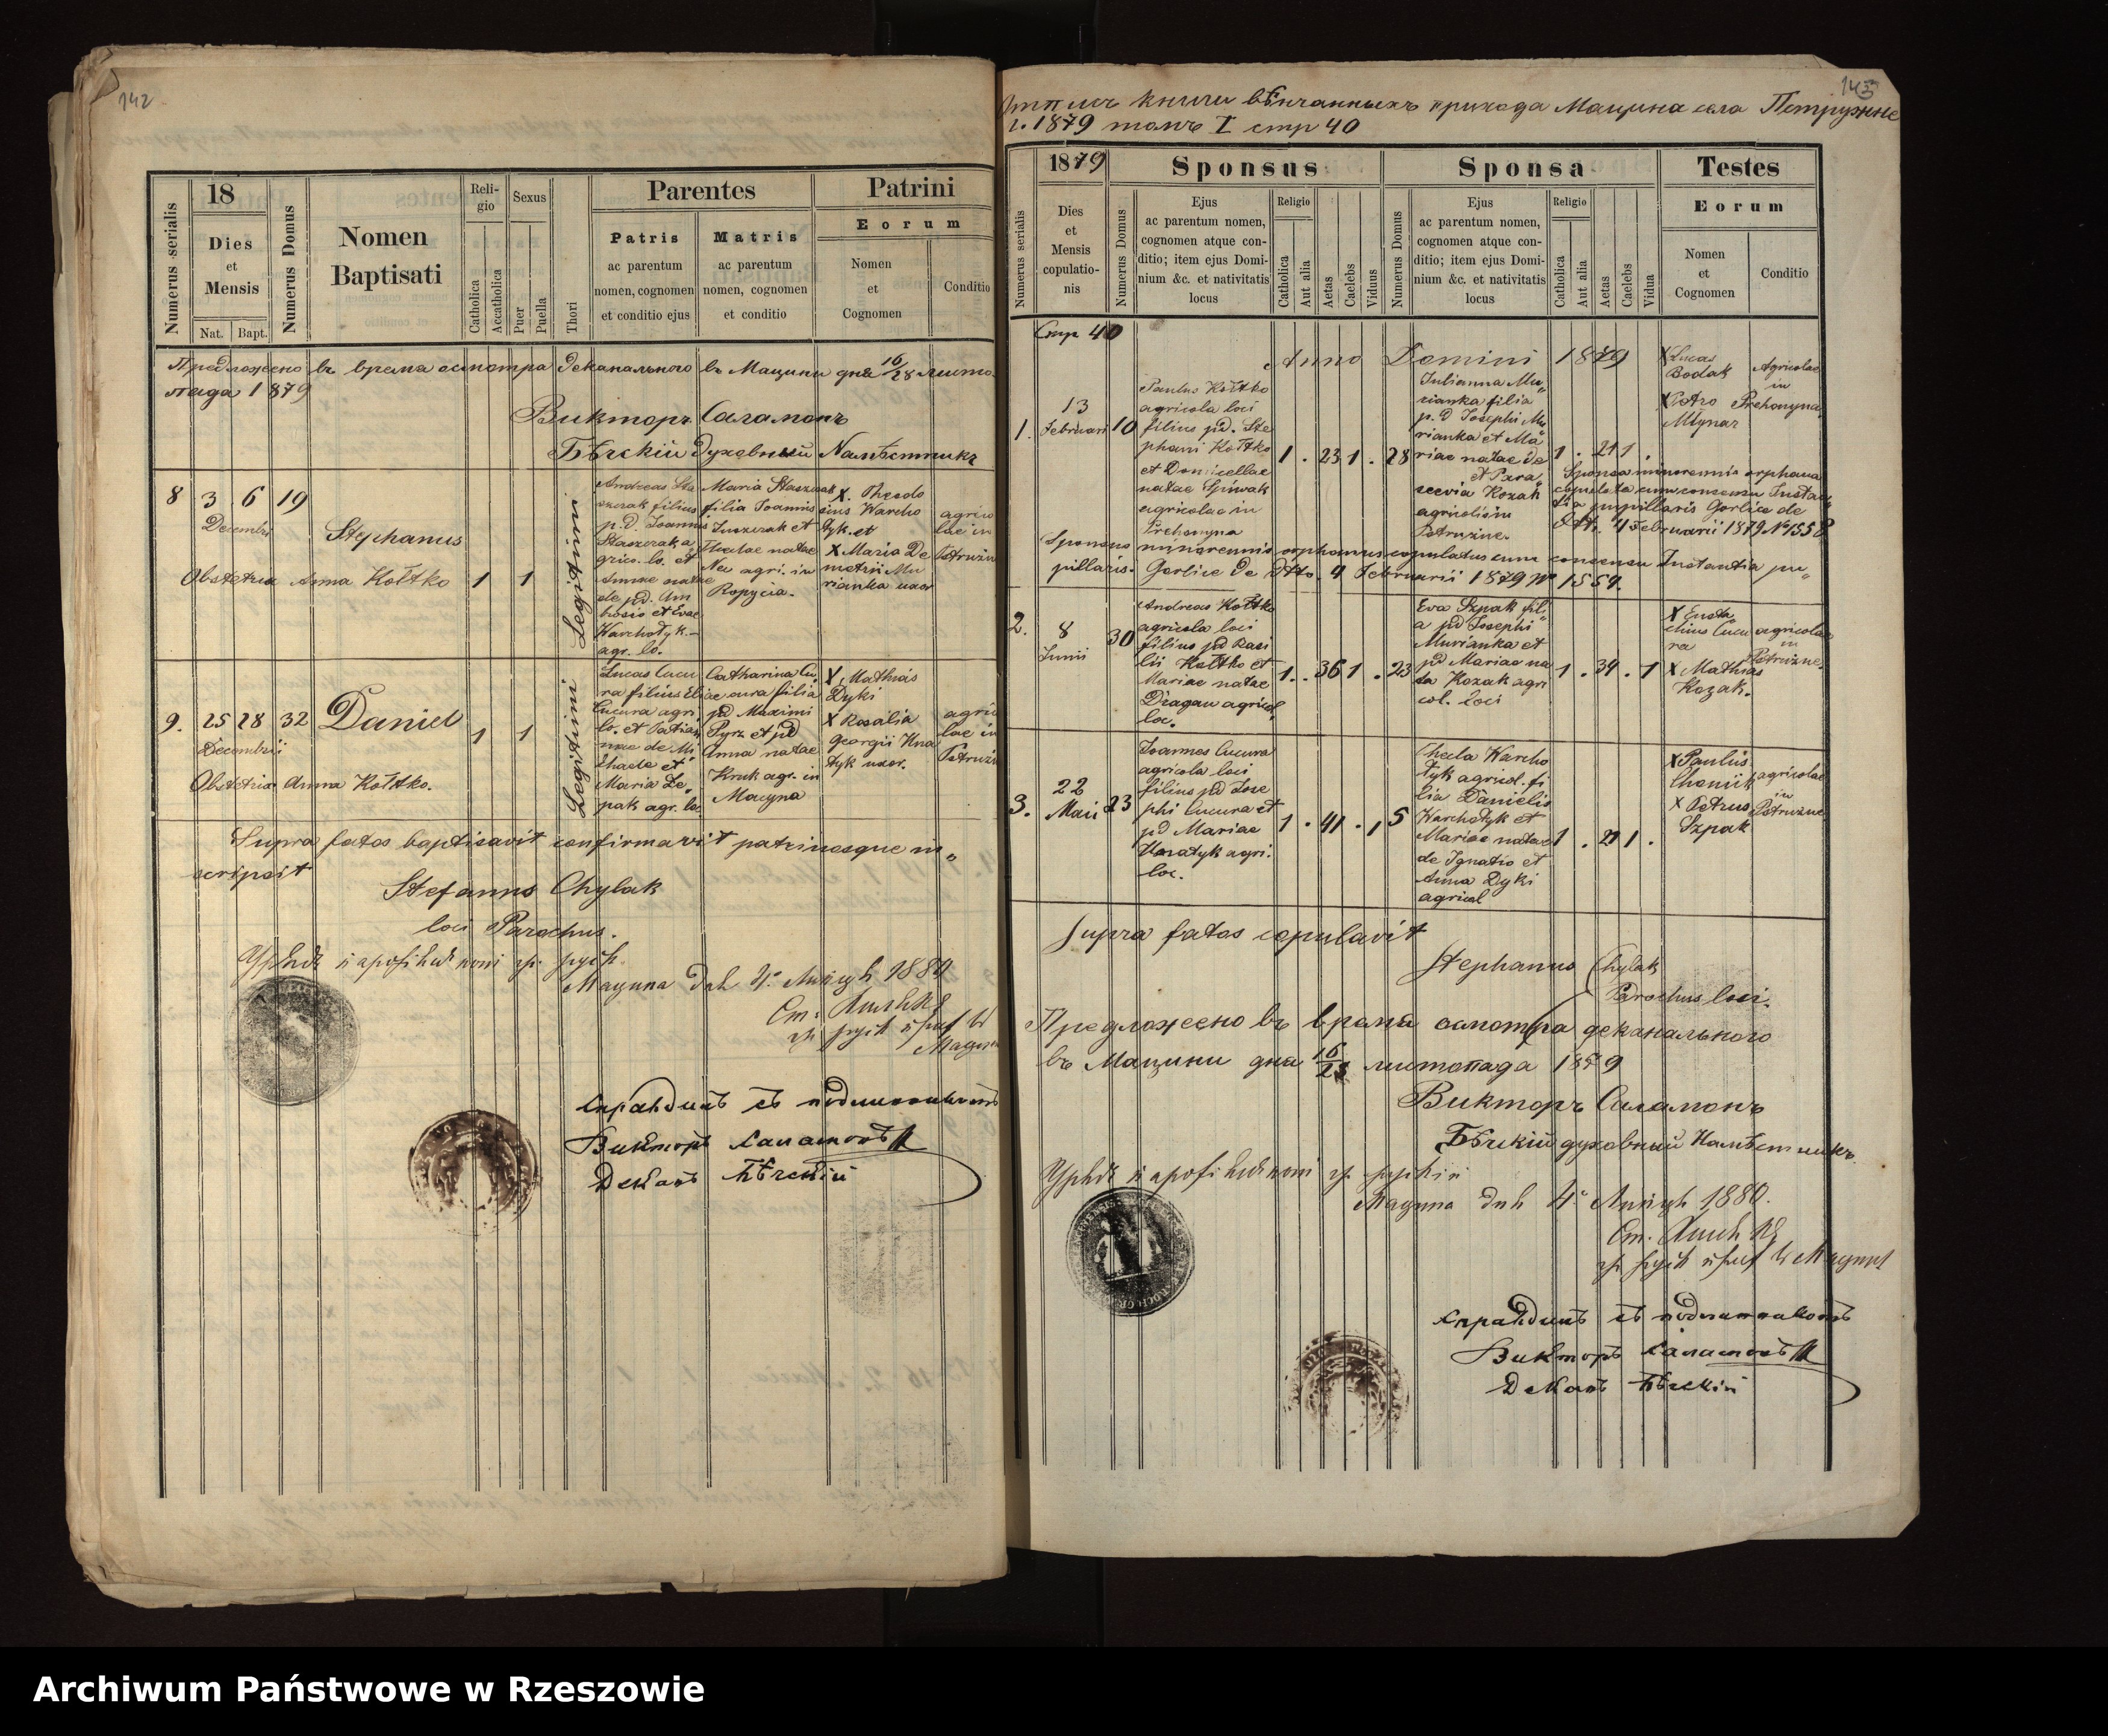 142
Numerus serialis
18
Dies
et
Mensis
Nat.
Bapt.
Numerus Domus
Nomen
Baptisati
Reli-
gio
Catholica
Accatholica
Sexus
Puer
Puella
Thori
Parentes
Patris
ac parentum
nomen, cognomen
et conditio ejus
Matris
ac parentum
nomen, cognomen
et conditio
Patrini
Eorum
Nomen
et
Cognomen
Conditio
Предложено въ время осмотра деканального въ Мацини дня 16/28 листо
пада 1879
Викторъ Саламонъ
Бѣчскій духовный Намѣстникъ
8 3 6 19
Decembri
Stephanus
1 1
Obstetrix Anna Kołtko
Legitimi
Andreas Sta
szczak filius
p.d. Joannis
Staszczak a
gric. lo. et
Annae natae
de pd. Am
brosio et Evae
Warchołyk
agr. lo.
Maria Staszczak
filia Joannis
et
Theclae natae
agri. in
Ropycia.
X. Theodo
sius Warcho
łyk et
X Maria De
metrii Mu
rianka uxor
agrico
lae in
Petruzne
9. 25 28 32 Daniel 1 1
Decembri
Obstetrix Anna Kołtko.
Legitimi
Lucas Cucu
ra filius Eliae
Cucura agri
lo. et Tatian
nae de Mi
chaele et
Maria Le„
pak agr. lo.
Catharina Cu„
cura filia
pd Maximi
Pyrz et pd
Anna natae
Kruk agr. in
Macyna
X Mathias
Dyki
X Rosalia
Georgii Hna
tyk uxor.
agrico
lae in
Petruzne
Supra fatos baptisavit confirmavit patrinosque in„
scripsit
Stefanus Chylak
loci Parochus.
Викторъ Саламонъ
Деканъ Бѣчскій
143
Отпись книги вѣнчанныхъ прихода Мацина села Петружне
г. 1879 томъ I стр 40
Numerus serialis
1879
Dies
et
Mensis
copulatio-
nis
Numerus Domus
Sponsus
Ejus
ac parentum nomen,
cognomen atque con-
ditio; item ejus Domi-
nium &c. et nativitatis
locus
Religio
Catholica
Aut alia
Aetas
Caelebs
Viduus
Numerus Domus
Sponsa
Ejus
ac parentum nomen,
cognomen atque con-
ditio; item ejus Domi-
nium &c. et nativitatis
locus
Religio
Catholica
Aut alia
Aetas
Caelebs
Vidua
Testes
Eorum
Nomen
et
Cognomen
Conditio
Стр 40
Anno Domini 1879
1. 13
Februari 10
Paulus Kołtko
agricola loci
filius pd. Ste
phani Kołtko
et Domicellae
natae Spiwak
agricolae in
Prehonyna
1 . 23 1 . 28
Julianna Mu„
rianka filia
p.d Josephi Mu
rianka et Ma„
riae natae de
et Para„
scevia Kozak
agricolis in
Petruzne.
1 . 21 1 .
X Lucas
Bodak
X Petro
Młynar
Agricolae
in
Prehonyna
Sponsa minorennis orphana
copulata cum consensu Insta„
tia pupillaris Gorlice de
dtto. 4 Februarii 1879. No 1558
Sponsus minorennis orphanus copulatus cum consensu Instantia pu„
pillaris. Gorlice de dtto. 4 Februarii 1879 No 1557.
2. 8
Junii 30
Andreas Kołtko
agricola loci
filius pd Basi
lii Kołtko et
Mariae natae
Dragan agricol.
loc.
1 . 36 1 . 23
Eva Szpak fili„
a pd Josephi
Murianka et
pd Mariae na
ta Kozak agri
col. loci
1 . 34 . 1
X Eusta„
chius Cucu
ra
X Mathias
Kozak.
agricolae
in
Petruzne.
3. 22
Maii 23
Joannes Cucura
agricola loci
filius pd Jose
phi Cucura et
pd Mariae
Hnatyk agri.
loc.
1 . 41 . 1 5
Thecla Warcho
łyk agricol. fi
lia Danielis
Warchołyk et
Mariae natae
de Ignatio et
Anna Dyki
agricol
1 . 21 1 .
X Paulus
Chomiik
X Petrus
Szpak
agricolae
in
Petruzne
Supra fatos copulavit
Stephanus Chylak
Parochus loci.
Предложено въ время осмотра деканального
въ Мацини дня 16/28 листопада 1879
Викторъ Саламонъ
Бѣчскій духовный Намѣстникъ.
Викторъ Саламонъ
Деканъ Бѣчскій
Archiwum Państwowe w Rzeszowie